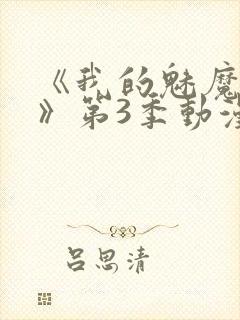 《我的魅魔
》第3季動漫
吕思清